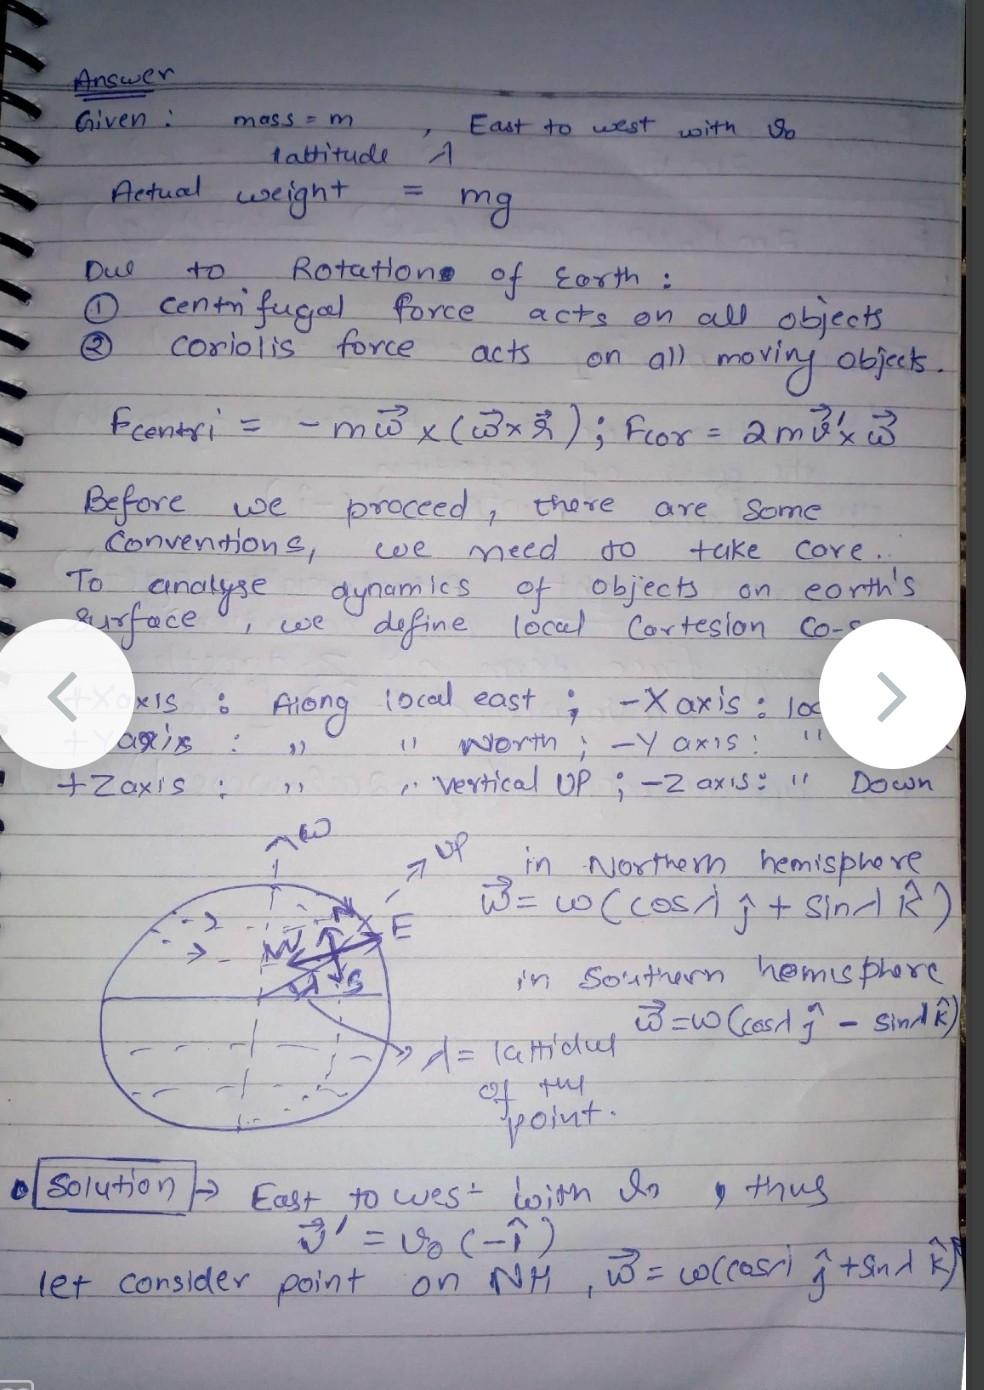 Answer
Given : mass = m , East to west with v₀
lattitude λ
Actual weight = mg
Due to Rotation of Earth :
① centrifugal force acts on all objects
② coriolis force acts on all moving objects.
Fcentri = - m ω⃗ × (ω⃗ × r⃗) ; Fcor = 2m v⃗' × ω⃗
Before we proceed, there are some
conventions, we need to take care..
To analyse dynamics of objects on earth's
surface, we define local Cartesion co-
+X axis : Along local east ; -X axis : loc
+Y axis : " " North ; -Y axis : "
+Z axis : " " vertical UP ; -Z axis : " Down
ω
UP
in Northern hemisphere
ω⃗ = ω (cosλ ĵ + sinλ k̂)
N
E
W
S
λ
in Southern hemisphere
ω⃗ = ω (cosλ ĵ - sinλ k̂)
λ = lattidue
of the
point.
Solution → East to west with v₀ , thus
v⃗' = v₀ (-î)
let consider point on NH , ω⃗ = ω(cosλ ĵ + sinλ k̂)